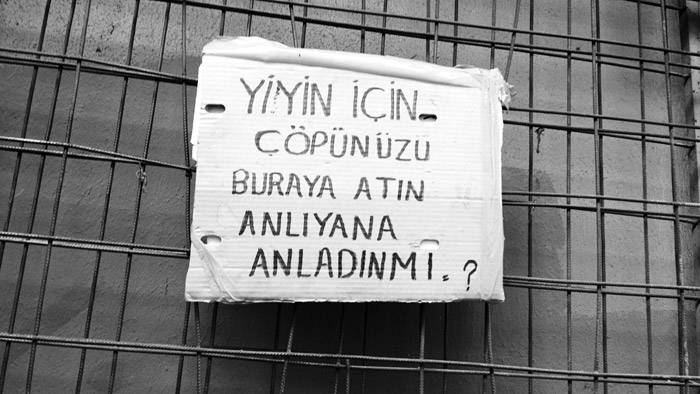 YİYİN İÇİN
ÇÖPÜNÜZÜ
BURAYA ATIN
ANLIYANA
ANLADINMI. ?